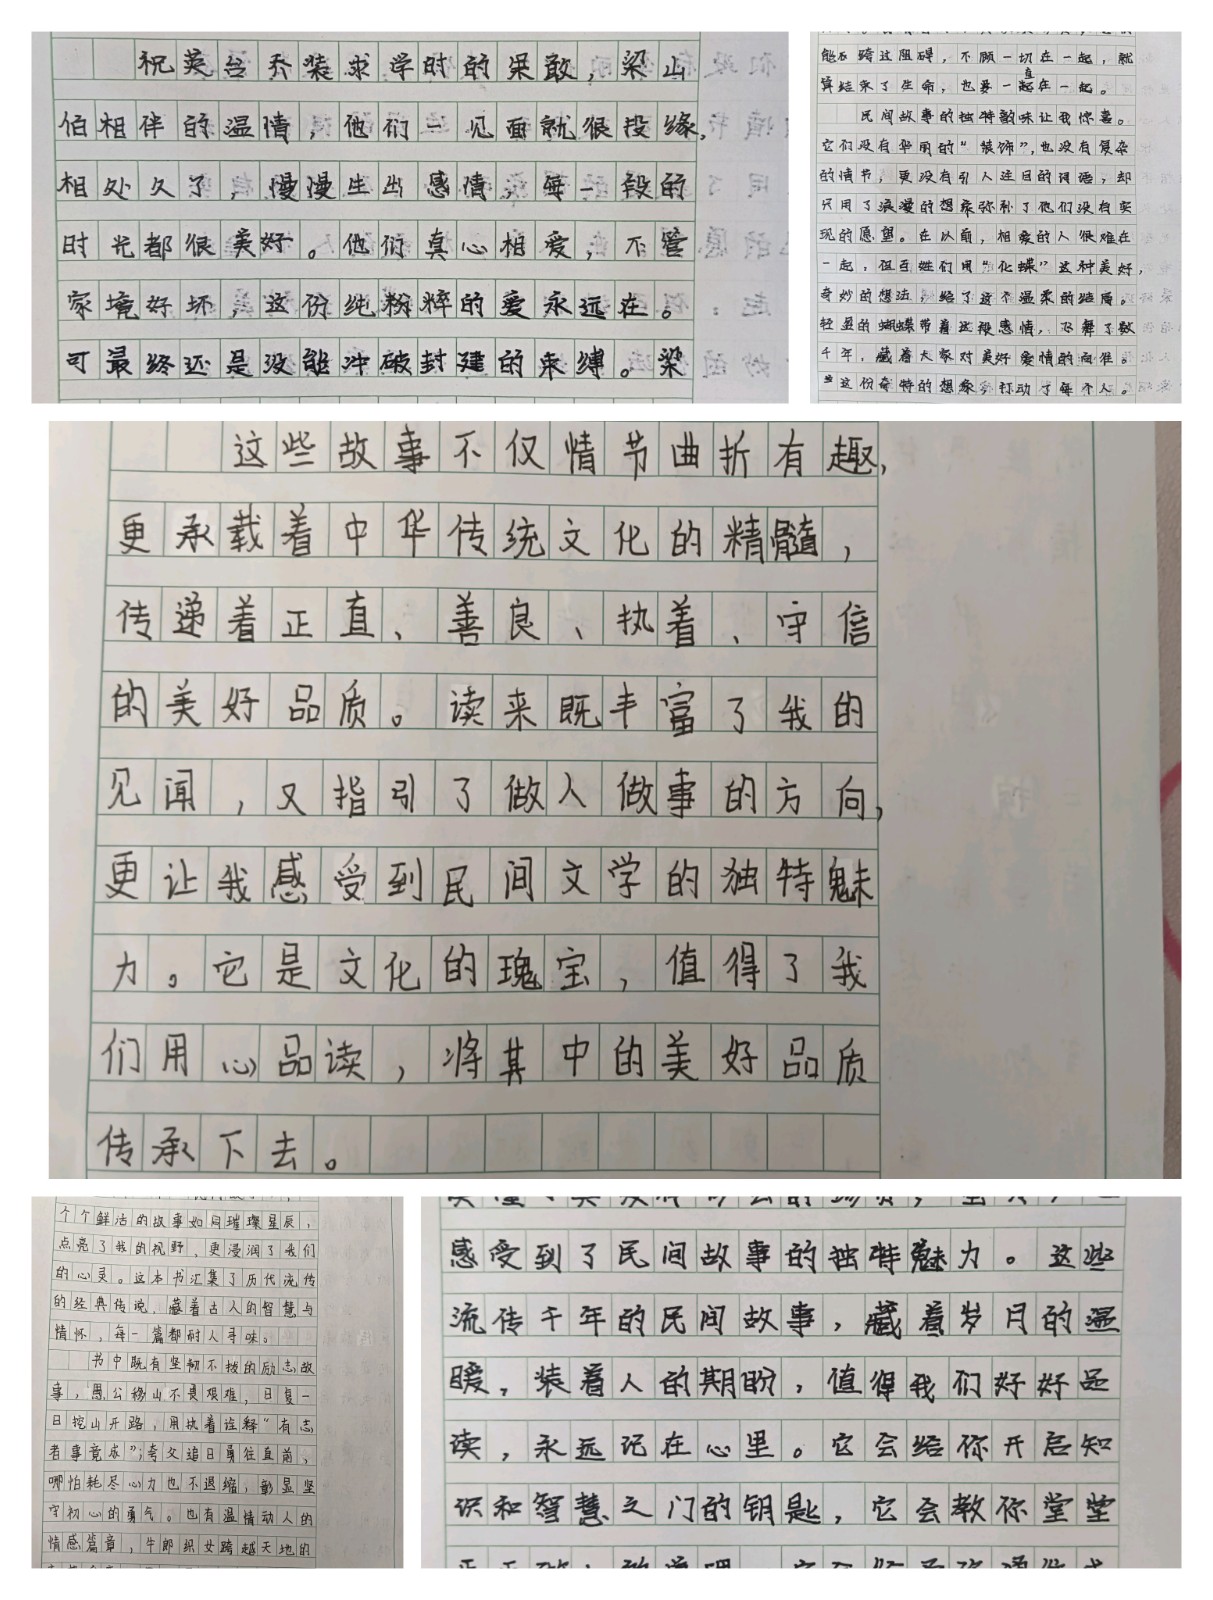 祝英台乔装求学时的果敢，梁山
伯相伴的温情，他们一见面就很投缘，
相处久了，慢慢生出感情，每一段的
时光都很美好。他们真心相爱，不管
家境好坏，这份纯粉粹的爱永远在。
可最终还是没能冲破封建的束缚。梁
能否跨过阻碍，不顾一切在一起，就
算结束了生命，也要一直在一起。
民间故事的独特韵味让我惊喜。
它们没有华丽的“装饰”，也没有复杂
的情节，更没有引人注目的词语，却
只用了浪漫的想象弥补了他们没有实
现的愿望。在以前，相爱的人很难在
一起，但百姓们用“化蝶”这种美好，
奇妙的想法，给了这个温柔的结局。
轻盈的蝴蝶带着这段感情，飞舞了数
千年，藏着大家对美好爱情的向往。
这份奇特的想象，打动了每个人。
这些故事不仅情节曲折有趣，
更承载着中华传统文化的精髓，
传递着正直、善良、执着、守信
的美好品质。读来既丰富了我的
见闻，又指引了做人做事的方向，
更让我感受到民间文学的独特魅
力。它是文化的瑰宝，值得了我
们用心品读，将其中的美好品质
传承下去。
个个鲜活的故事如同璀璨星辰，
点亮了我的视野、更浸润了我们
的心灵。这本书汇集了历代流传
的经典传说，藏着古人的智慧与
情怀，每一篇都耐人寻味。
书中既有坚韧不拔的励志故
事，愚公移山不畏艰难，日复一
日挖山开路，用执着诠释“有志
者事竟成”；夸父追日勇往直前，
哪怕耗尽心力也不退缩，彰显坚
守初心的勇气。也有温情动人的
情感篇章，牛郎织女跨越天地的
感受到了民间故事的独特魅力。这些
流传千年的民间故事，藏着岁月的温
暖，装着人的期盼，值得我们好好品
读，永远记在心里。它会给你开启知
识和智慧之门的钥匙，它会教你堂堂